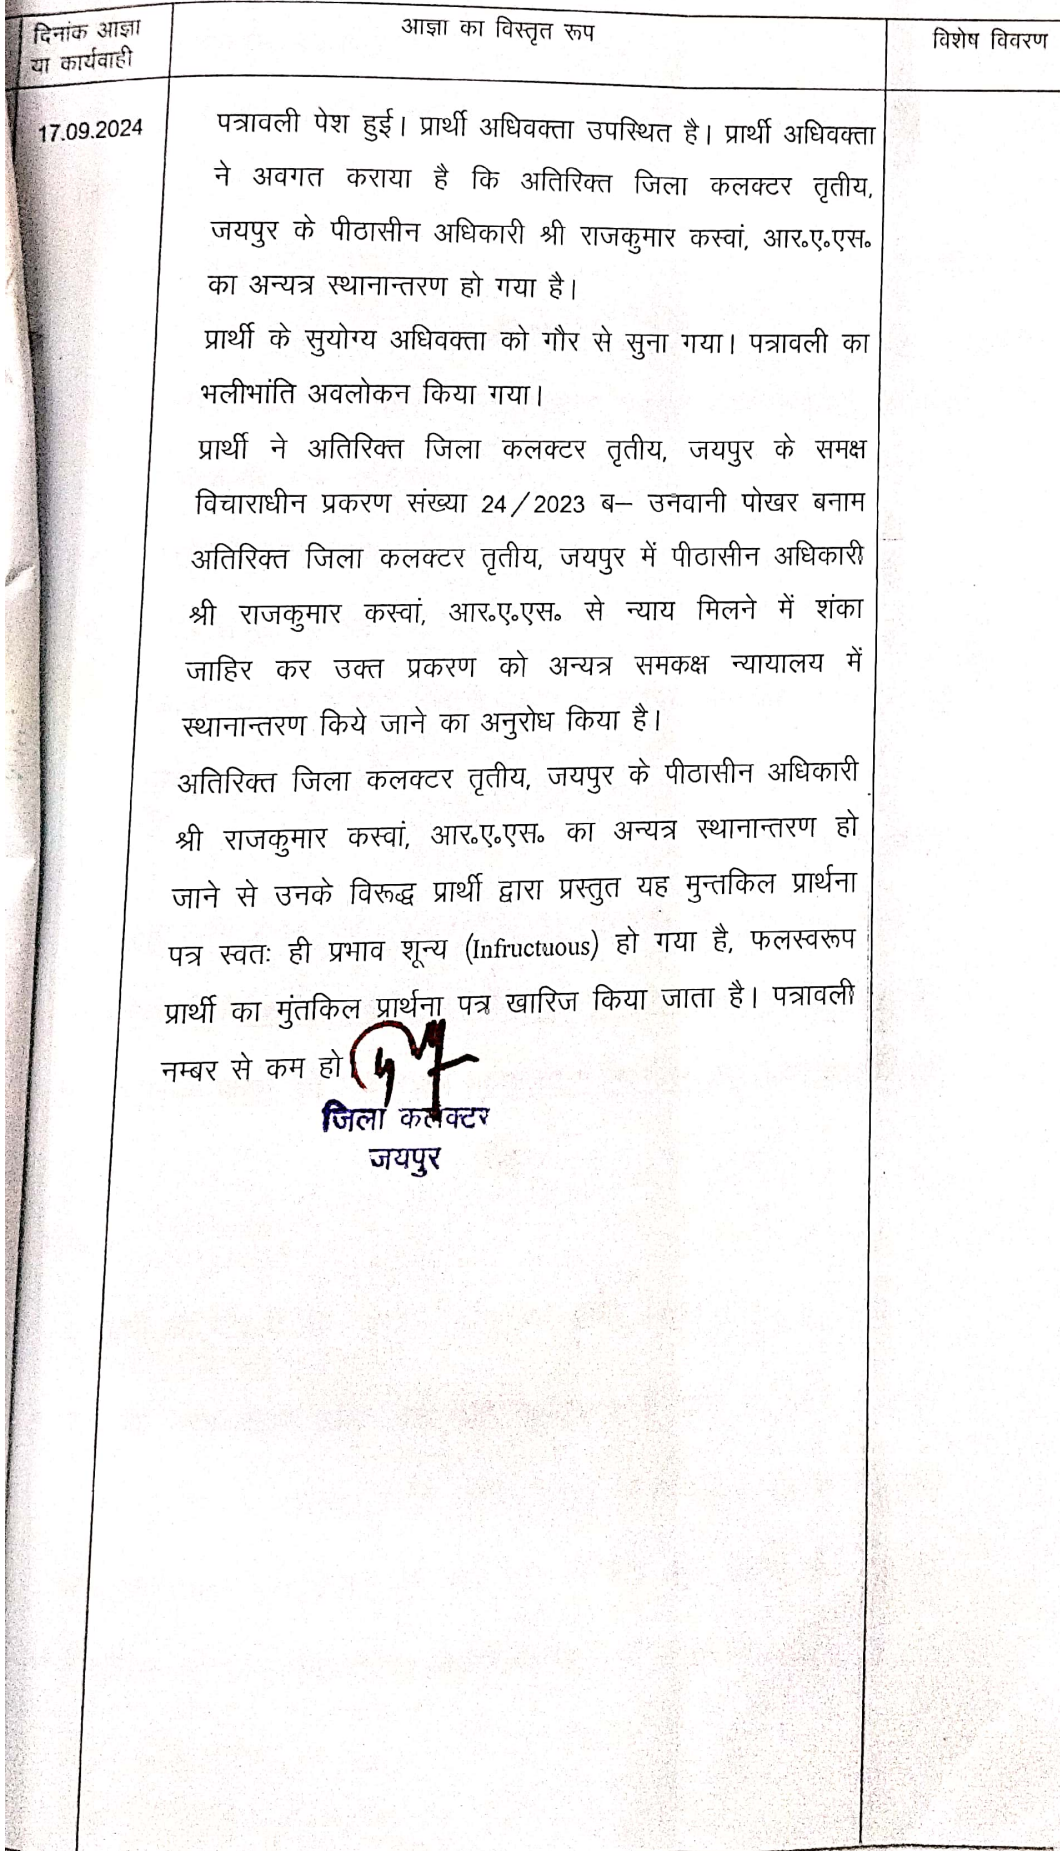 दिनांक आज्ञा
या कार्यवाही
आज्ञा का विस्तृत रूप
विशेष विवरण
17.09.2024
पत्रावली पेश हुई। प्रार्थी अधिवक्ता उपस्थित है। प्रार्थी अधिवक्ता
ने अवगत कराया है कि अतिरिक्त जिला कलक्टर तृतीय,
जयपुर के पीठासीन अधिकारी श्री राजकुमार कस्वां, आर०ए०एस०
का अन्यत्र स्थानान्तरण हो गया है।
प्रार्थी के सुयोग्य अधिवक्ता को गौर से सुना गया। पत्रावली का
भलीभांति अवलोकन किया गया।
प्रार्थी ने अतिरिक्त जिला कलक्टर तृतीय, जयपुर के समक्ष
विचाराधीन प्रकरण संख्या 24/2023 ब– उनवानी पोखर बनाम
अतिरिक्त जिला कलक्टर तृतीय, जयपुर में पीठासीन अधिकारी
श्री राजकुमार कस्वां, आर०ए०एस० से न्याय मिलने में शंका
जाहिर कर उक्त प्रकरण को अन्यत्र समकक्ष न्यायालय में
स्थानान्तरण किये जाने का अनुरोध किया है।
अतिरिक्त जिला कलक्टर तृतीय, जयपुर के पीठासीन अधिकारी
श्री राजकुमार कस्वां, आर०ए०एस० का अन्यत्र स्थानान्तरण हो
जाने से उनके विरूद्ध प्रार्थी द्वारा प्रस्तुत यह मुन्तकिल प्रार्थना
पत्र स्वतः ही प्रभाव शून्य (Infructuous) हो गया है, फलस्वरूप
प्रार्थी का मुंतकिल प्रार्थना पत्र खारिज किया जाता है। पत्रावली
नम्बर से कम हो
जिला कलक्टर
जयपुर